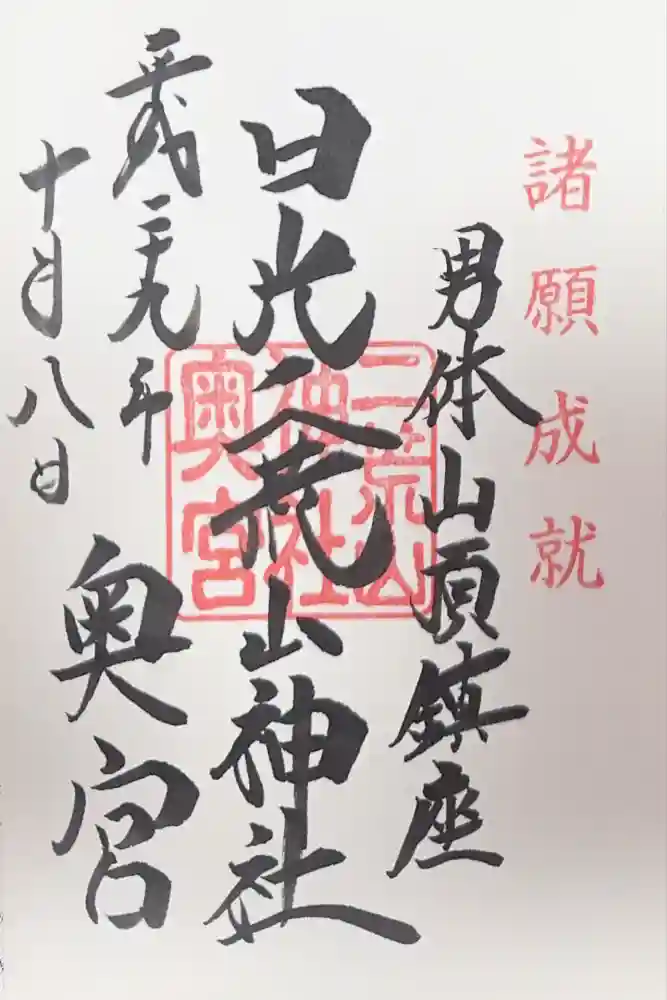 諸願成就
男体山頂鎮座
日光二荒山神社
二荒山
神社
奥宮
奥宮
平成二十九年
十月八日